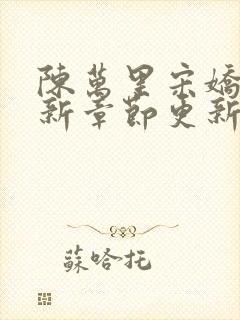 陳萬里宋嬌
新章節更新
蘇哈托